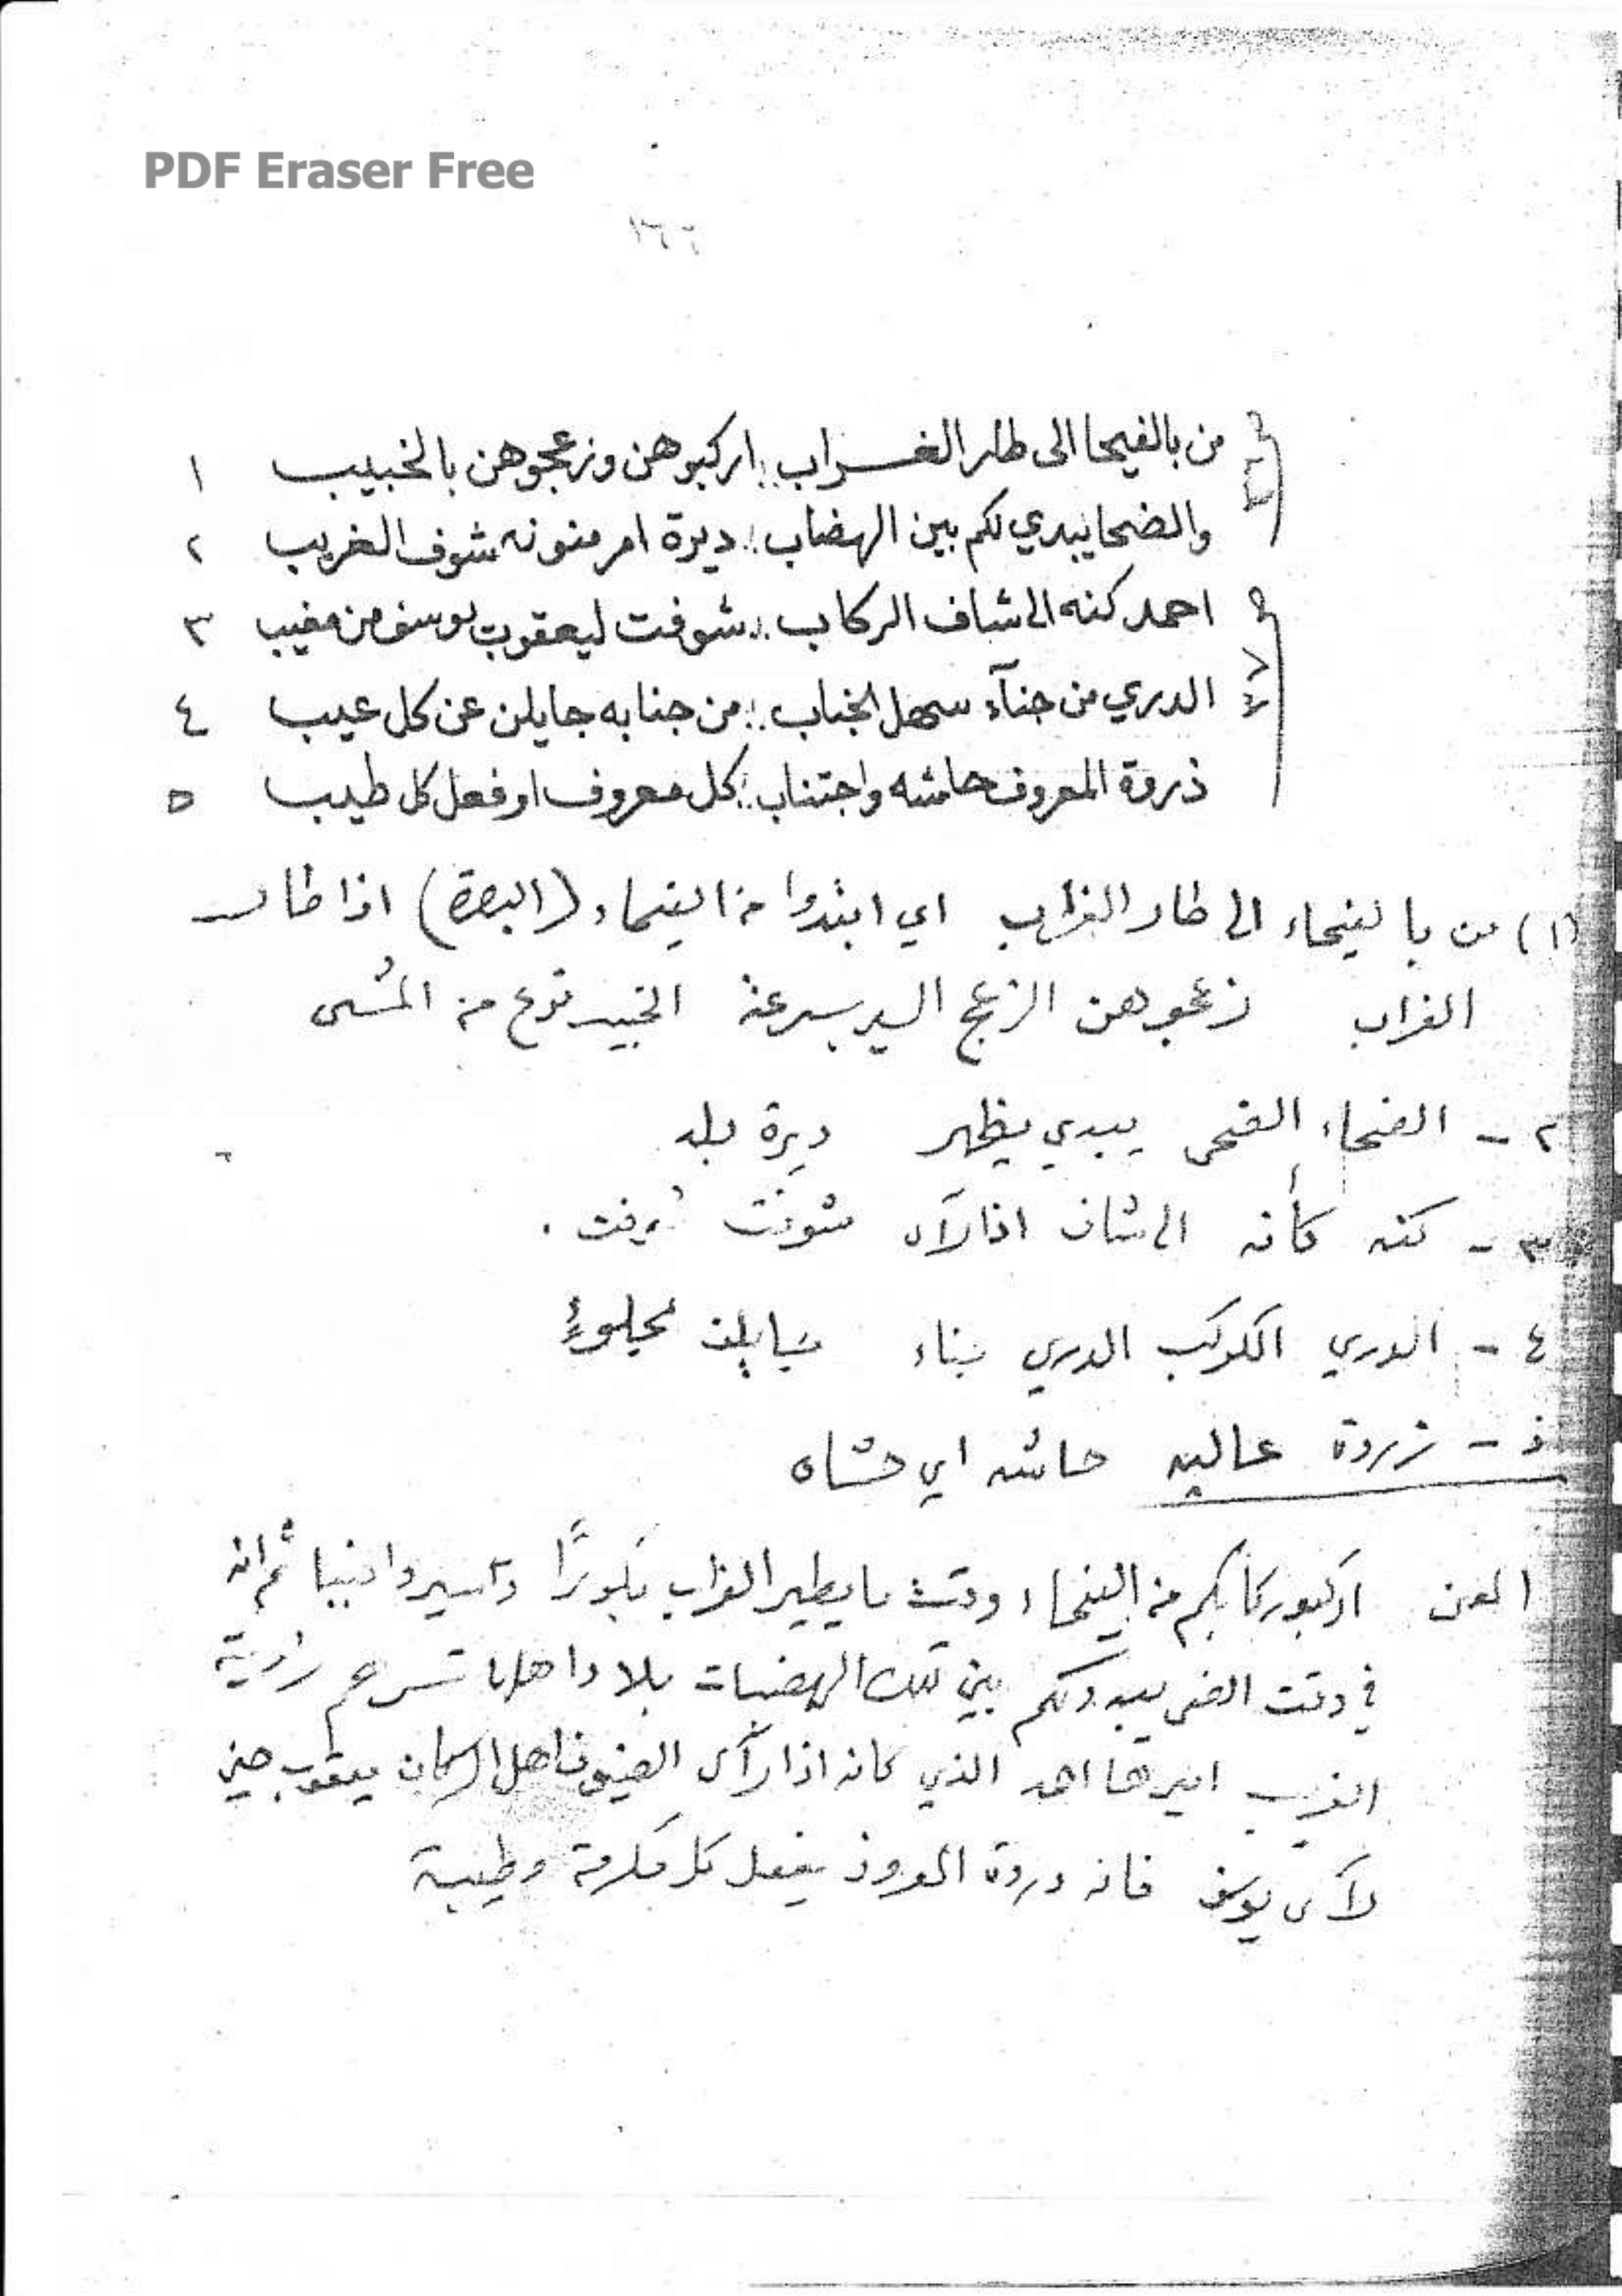 PDF Eraser Free
١٦٦
من بالفيحا الى طار الغراب :: اركبوهن وزعجوهن بالخبيب ١
والضحا يبدي لكم بين الهضاب :: ديرة امر منونه شوف الغريب ٢
احمد كنه الى شاف الركاب :: شوفت ليعقوب يوسف من مغيب ٣
الدري من جنآء سهل الجناب :: من جنابه جايلن عن كل عيب ٤
ذروة المعروف حامشه واجتناب :: كل معروف او فعل كل طيب ٥
(١) من بالفيحاء الى طار الغراب اي ابتدوا من الفيحاء (البصرة) اذا طار
الغراب زعجوهن الزعج السير بسرعة الخبيب نوع من المشي
٢ - الضحاء الضحى يبدي يظهر ديرة بلد
٣ - كنه كأنه الى شاف اذا رآى شوفت
٤ - الدري الكوكب الدري
ذروة عاليه حاشه اي حشاه
المعنى اركبو ركابكم من الفيحاء وقت ما يطير الغراب بكورًا ثم انه
في وقت الضحى يبدو لكم بين تلك الهضبات بلاد اهلها رؤية
الغريب اميرها احمد الذي كانه اذا رآى الضيوف اهل الركاب يعقوب حين
رآى يوسف فانه ذروة المعروف يفعل كل مكرمة وطيبة